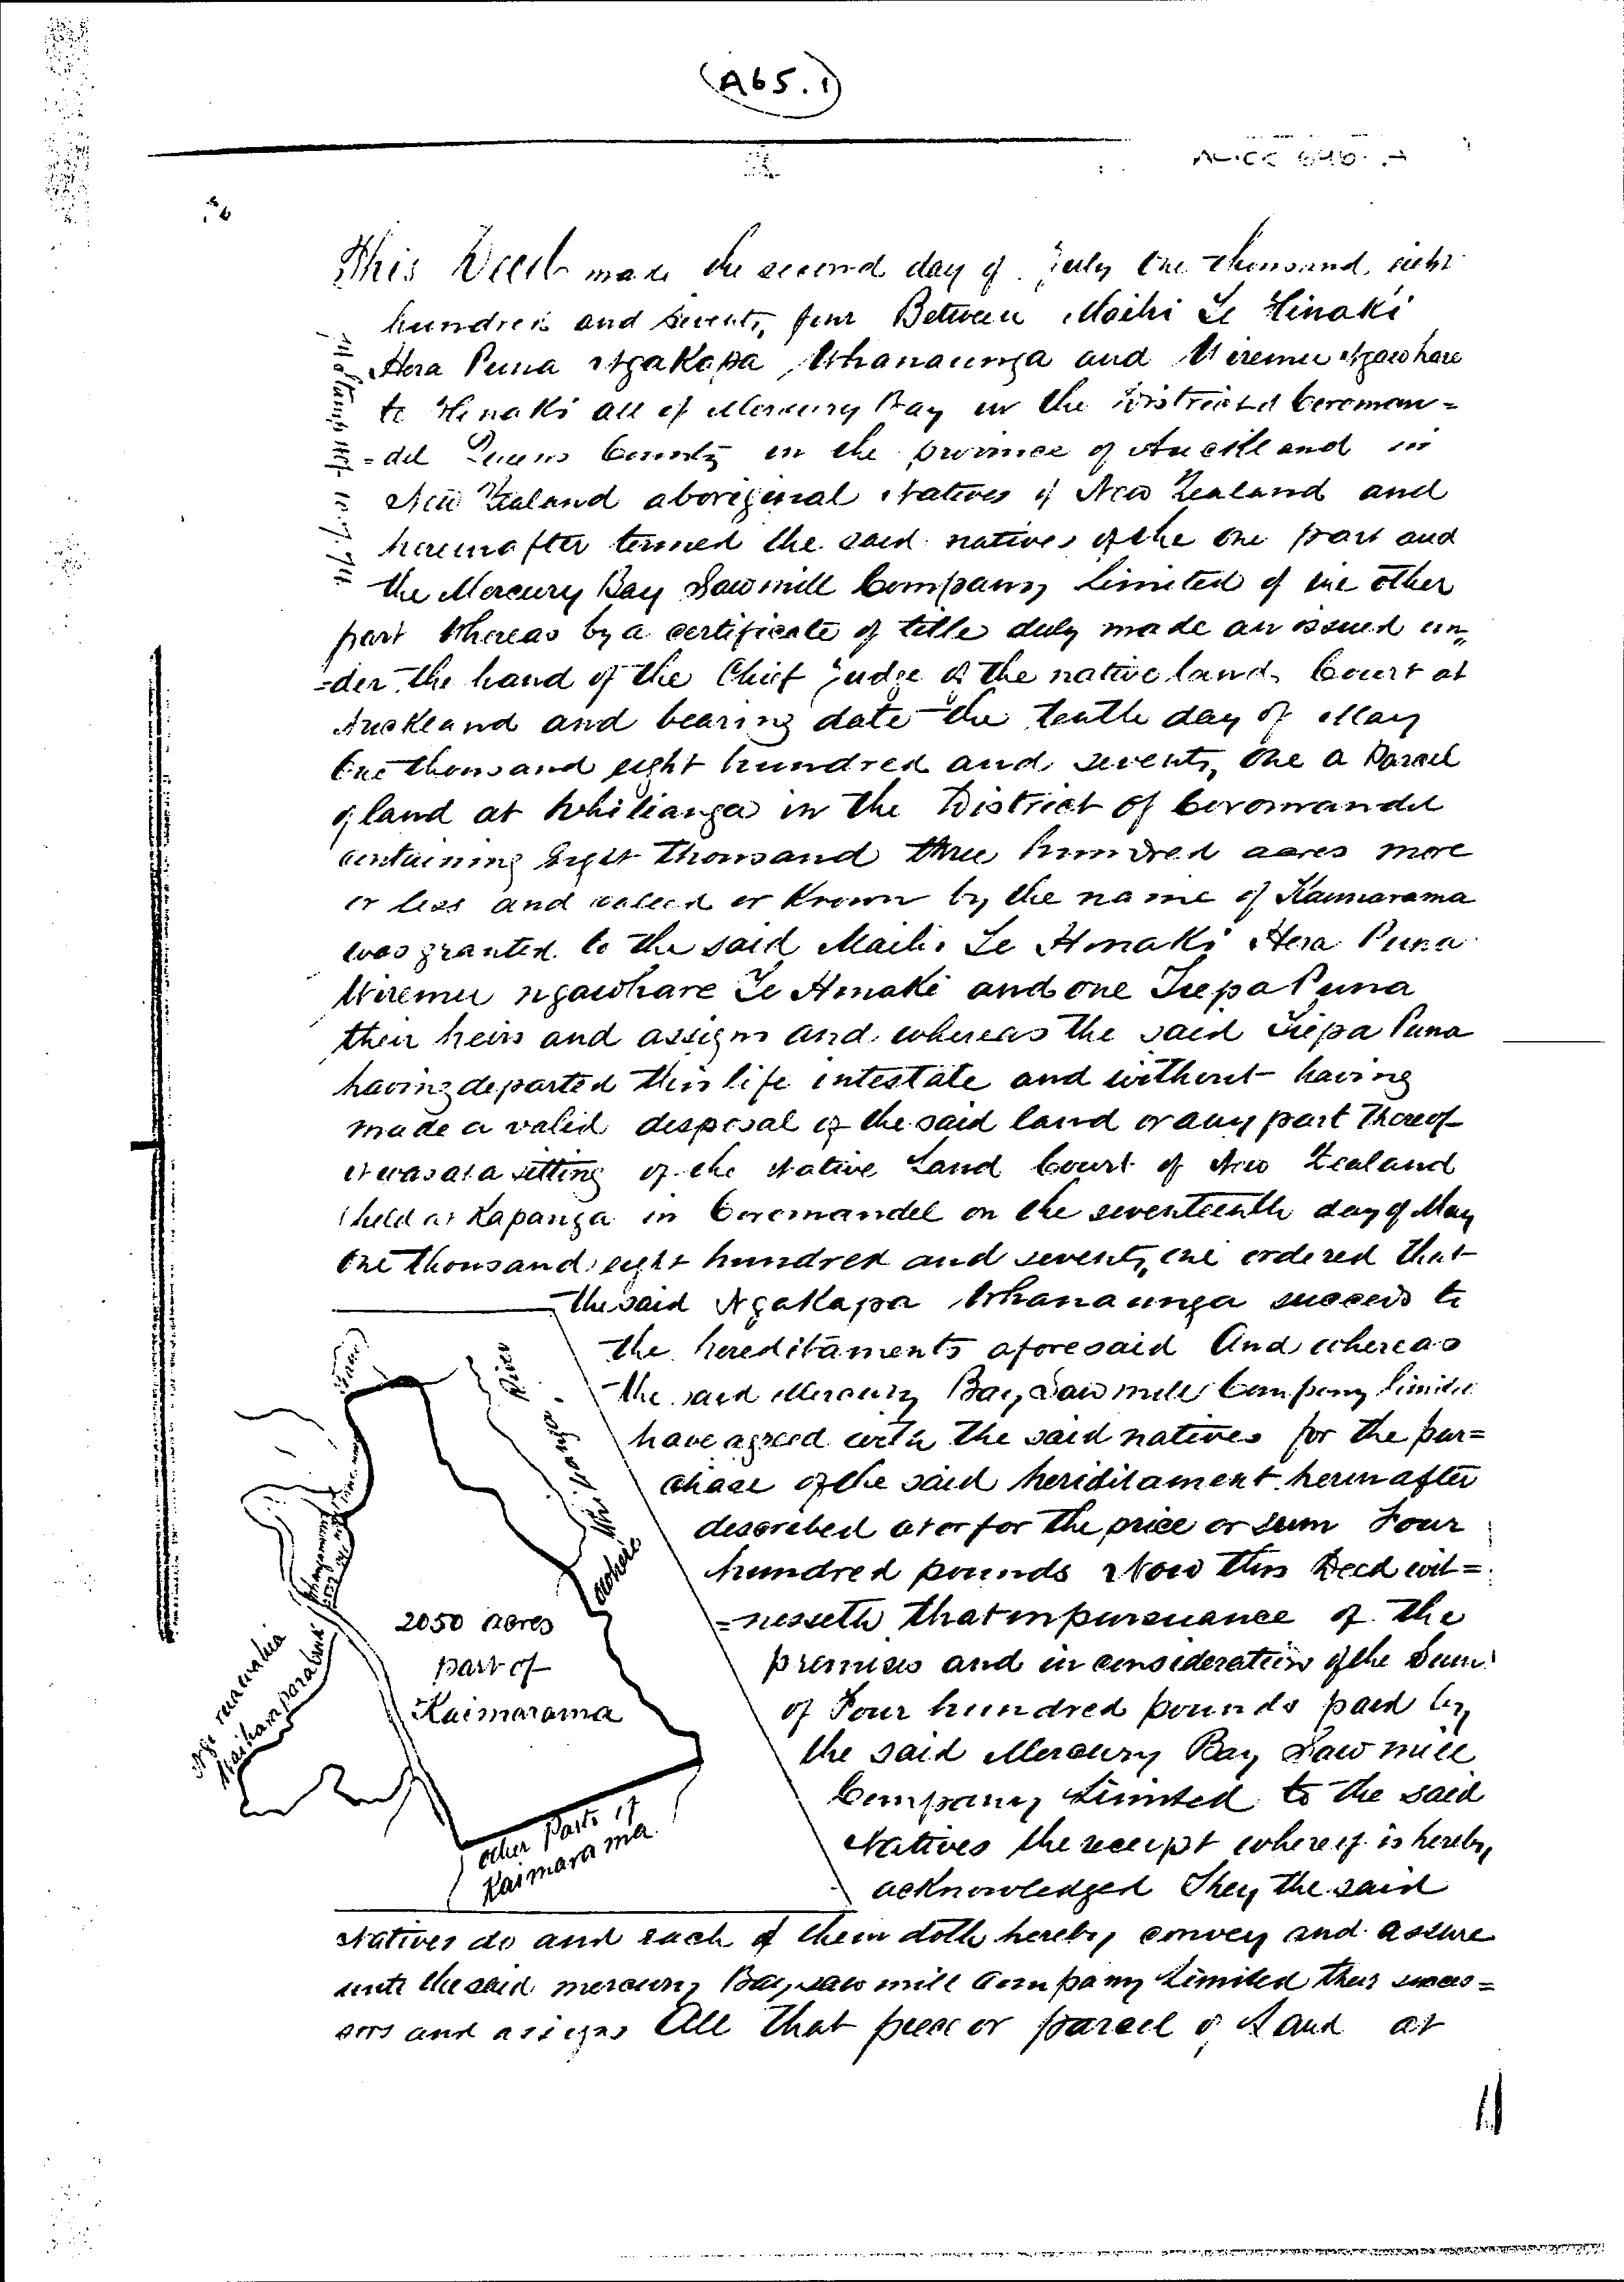 A65.1
This Deed made the second day of July One thousand eight
hundred and seventy four Between Maihi Te Hinaki
Hera Puna Ngakapa Whanaunga and Wiremu Ngawhare
te Hinaki all of Mercury Bay in the District of Coroman=
=del Queens County in the province of Auckland in
New Zealand aboriginal Natives of New Zealand and
hereinafter termed the said natives of the one part and
the Mercury Bay Sawmill Company Limited of the other
part Whereas by a certificate of title duly made an issued un=
=der the hand of the Chief Judge of the native land Court at
Auckland and bearing date the tenth day of May
One thousand eight hundred and seventy one a Parcel
of land at Whitianga in the District of Coromandel
containing Eight thousand three hundred acres more
or less and called or known by the name of Kaimarama
was granted to the said Maihi Te Hinaki Hera Puna
Wiremu ngawhare Te Hinaki and one Tiepa Puna
their heirs and assigns and whereas the said Tiepa Puna
having departed this life intestate and without having
made a valid disposal of the said land or any part thereof
it was at a sitting of the Native Land Court of New Zealand
held at Kapanga in Coromandel on the seventeenth day of May
One thousand eight hundred and seventy one ordered that
the said Ngakapa Whanaunga succeed to
the hereditaments aforesaid And whereas
the said Mercury Bay Saw mill Company limited
have agreed with the said natives for the pur=
chase of the said heriditament hereinafter
described at or for the price or sum Four
hundred pounds Now this Deed wit=
=nesseth that in pursuance of the
premises and in consideration of the Sum
of Four hundred pounds paid by
the said Mercury Bay Saw mill
Company Limited to the said
Natives the receipt whereof is hereby
acknowledged They the said
River
Whitianga
2050 acres
part of
Kaimarama
other Parts of
Kaimarama
Natives do and each of them doth hereby convey and assure
unto the said mercury Bay saw mill Company Limited their succes=
sors and assigns All that piece or parcel of Land at